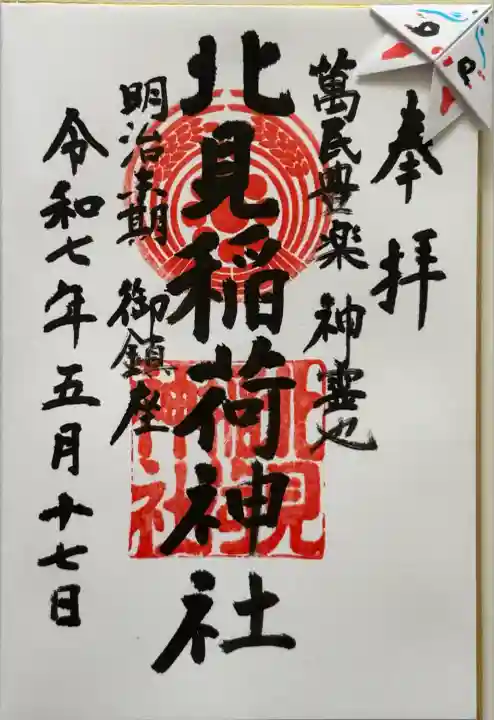 奉拝
萬民豊楽 神霊也
北見稲荷神社
明治末期 御鎮座
令和七年五月十七日
北見
稲荷
神社